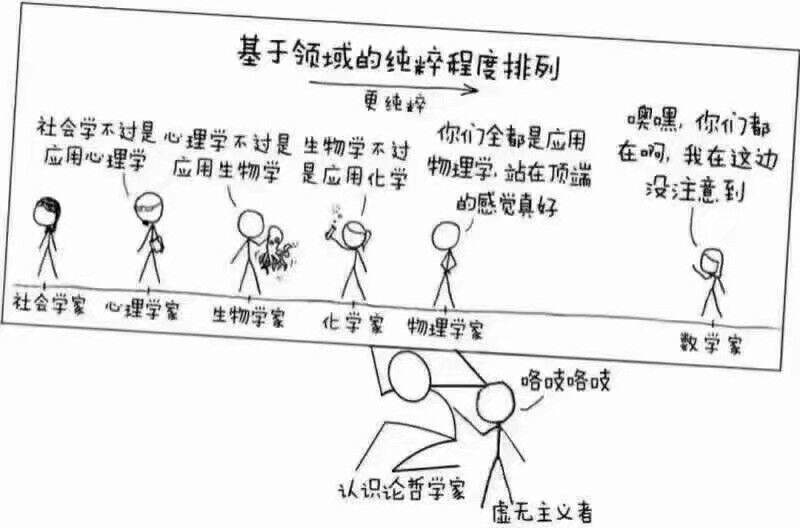 基于领域的纯粹程度排列
更纯粹
社会学不过是
应用心理学
心理学不过是
应用生物学
生物学不过
是应用化学
你们全都是应用
物理学,站在顶端
的感觉真好
噢嘿,你们都
在啊,我在这边
没注意到
社会学家
心理学家
生物学家
化学家
物理学家
数学家
咯吱咯吱
认识论哲学家
虚无主义者